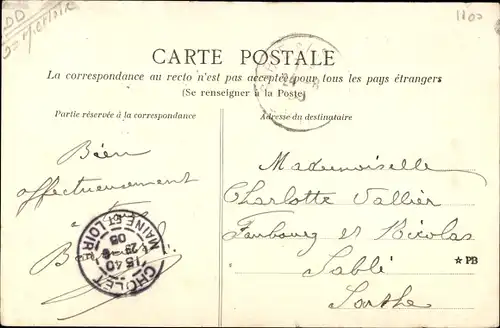 1800
CARTE POSTALE
La correspondance au recto n'est pas acceptée pour tous les pays étrangers
(Se renseigner à la Poste)
Partie réservée à la correspondance
Adresse du destinataire
Bien
affectueusement
à
CHOLET
MAINE ET LOIRE
15 40
29
05
Mademoiselle
Charlotte Vallier
Faubourg St Nicolas
Sablé
Sarthe
☆ PB